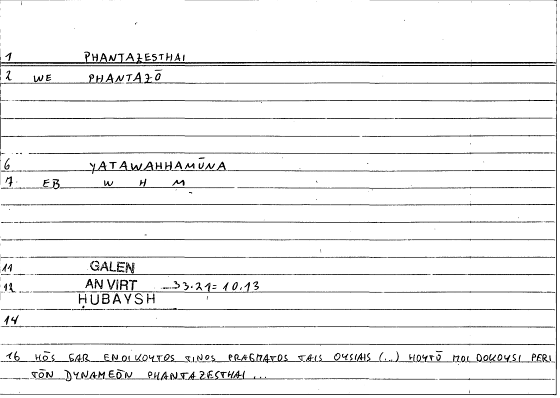 1 PHANTAZESTHAI
2 WE PHANTAZŌ
6 YATAWAHHAMŪNA
7. EB W H M
11 GALEN
12 AN VIRT 33.21 = 10.13
ḤUBAYSH
14
16 HŌS GAR ENOIKOYTOS TINOS PRAGMATOS TAIS OYSIAIS (...) HOYTŌ MOI DOKOYSI PERI
TŌN DYNAMEŌN PHANTAZESTHAI ...